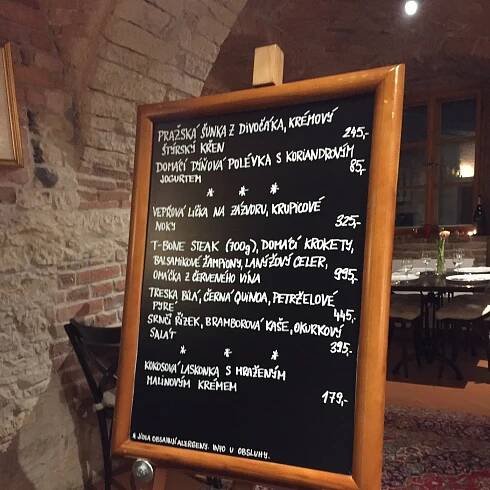 PRAŽSKÁ ŠUNKA Z DIVOČÁKA, KRÉMOVÝ
ŠTÝRSKÝ KŘEN 245,-
DOMÁCÍ DÝŇOVÁ POLÉVKA S KORIANDROVÝM
JOGURTEM 85,-
* * *
VEPŘOVÁ LÍČKA NA ZÁZVORU, KRUPICOVÉ
NOKY 325,-
T-BONE STEAK (700g), DOMÁCÍ KROKETY,
BALSAMIKOVÉ ŽAMPIONY, LANÝŽOVÝ CELER,
OMÁČKA Z ČERVENÉHO VÍNA 995,-
TRESKA BÍLÁ, ČERNÁ QUINOA, PETRŽELOVÉ
PYRÉ 445,-
SRNČÍ ŘÍZEK, BRAMBOROVÁ KAŠE, OKURKOVÝ
SALÁT 395,-
* * *
KOKOSOVÁ LASKONKA S MRAŽENÝM
MALINOVÝM KRÉMEM 179,-
* JÍDLA OBSAHUJÍ ALERGENY. INFO U OBSLUHY.